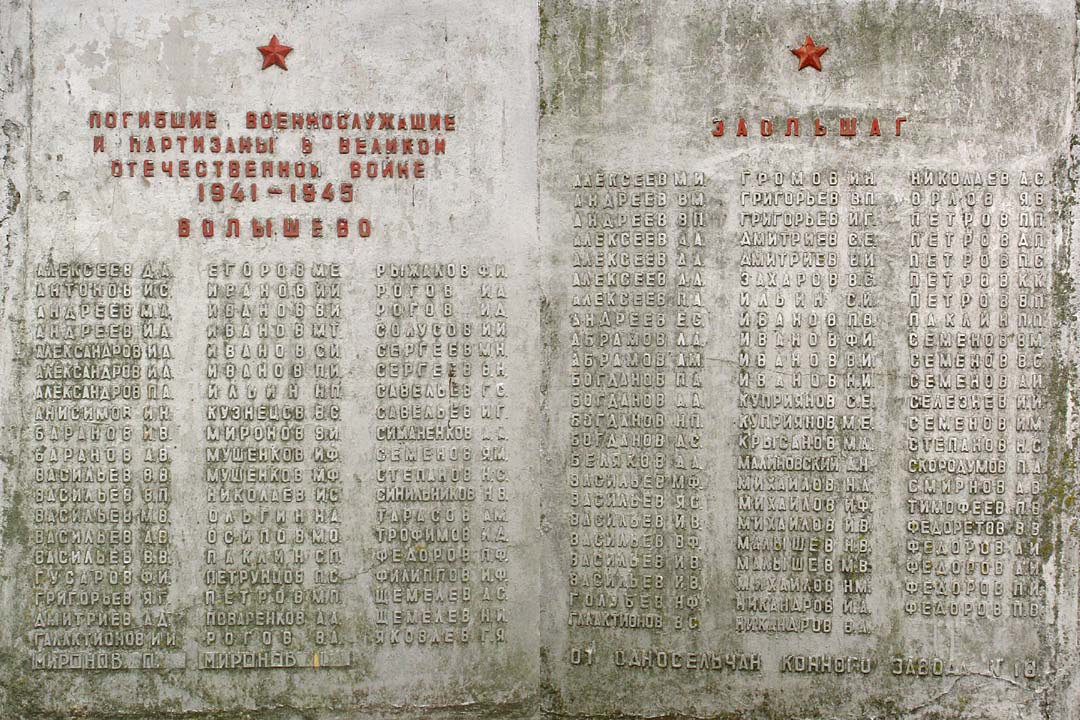 ПОГИБШИЕ ВОЕННОСЛУЖАЩИЕ
И ПАРТИЗАНЫ В ВЕЛИКОЙ
ОТЕЧЕСТВЕННОЙ ВОЙНЕ
1941-1945
ВОЛЫШЕВО
АЛЕКСЕЕВ Д.А.
АНТОНОВ И.С.
АНДРЕЕВ М.А.
АНДРЕЕВ И.А.
АЛЕКСАНДРОВ И.А.
АЛЕКСАНДРОВ И.А.
АЛЕКСАНДРОВ П.А.
АНИСИМОВ И.Н.
БАРАНОВ И.В.
БАРАНОВ А.В.
ВАСИЛЬЕВ В.В.
ВАСИЛЬЕВ В.П.
ВАСИЛЬЕВ М.В.
ВАСИЛЬЕВ А.В.
ВАСИЛЬЕВ В.В.
ГУСАРОВ Ф.И.
ГРИГОРЬЕВ Я.Г.
ДМИТРИЕВ А.Д.
ГАЛАКТИОНОВ И.И.
МИРОНОВ П.
ЕГОРОВ М.Е.
ИВАНОВ И.И.
ИВАНОВ В.И.
ИВАНОВ М.Т.
ИВАНОВ С.И.
ИВАНОВ П.И.
ИЛЬИН Н.П.
КУЗНЕЦОВ В.С.
МИРОНОВ В.И.
МУШЕНКОВ И.Ф.
МУШЕНКОВ М.Ф.
НИКОЛАЕВ И.С.
ОЛЬГИН Н.А.
ОСИПОВ М.О.
ПАКЛИН С.П.
ПЕТРУНЦОВ П.С.
ПЕТРОВ М.П.
ПОВАРЕНКОВ А.А.
РОГОВ В.А.
МИРОНОВ
РЫЖАКОВ Ф.И.
РОГОВ И.А.
РОГОВ И.Д.
СОЛУСОВ И.И.
СЕРГЕЕВ М.Н.
СЕРГЕЕВ В.Н.
САВЕЛЬЕВ Г.С.
САВЕЛЬЕВ И.Г.
СИМАНЕНКОВ А.А.
СЕМЕНОВ Я.М.
СТЕПАНОВ Н.С.
СИНИЛЬНИКОВ Н.В.
ТАРАСОВ А.М.
ТРОФИМОВ А.Д.
ФЕДОРОВ П.Ф.
ФИЛИППОВ И.Ф.
ЩЕМЕЛЕВ А.С.
ЩЕМЕЛЕВ Н.И.
ЯКОВЛЕВ Г.Я.
ЗАОЛЬШАГ
АЛЕКСЕЕВ М.И.
АНДРЕЕВ В.М.
АНДРЕЕВ В.П.
АЛЕКСЕЕВ Д.А.
АЛЕКСЕЕВ Д.А.
АЛЕКСЕЕВ А.А.
АЛЕКСЕЕВ П.А.
АНДРЕЕВ Е.С.
АБРАМОВ Л.А.
АБРАМОВ А.М.
БОГДАНОВ П.А.
БОГДАНОВ А.А.
БОГДАНОВ Н.П.
БОГДАНОВ А.С.
БЕЛЯКОВ А.А.
ВАСИЛЬЕВ М.Ф.
ВАСИЛЬЕВ Я.С.
ВАСИЛЬЕВ И.В.
ВАСИЛЬЕВ В.Ф.
ВАСИЛЬЕВ И.В.
ВАСИЛЬЕВ И.В.
ГОЛУБЕВ Н.Ф.
ГАЛАКТИОНОВ В.С.
ГРОМОВ И.Н.
ГРИГОРЬЕВ В.П.
ГРИГОРЬЕВ И.Г.
ДМИТРИЕВ С.Е.
ДМИТРИЕВ В.И.
ЗАХАРОВ В.С.
ИЛЬИН С.И.
ИВАНОВ П.В.
ИВАНОВ Ф.И.
ИВАНОВ В.И.
ИВАНОВ Н.И.
КУПРИЯНОВ С.Е.
КУПРИЯНОВ М.Е.
КРЫСАНОВ М.А.
МАЛИНОВСКИЙ А.Н.
МИХАЙЛОВ Н.А.
МИХАЙЛОВ И.Ф.
МИХАЙЛОВ И.В.
МАЛЫШЕВ Н.В.
МАЛЫШЕВ М.В.
МИХАЙЛОВ Н.М.
НИКАНДРОВ И.А.
НИКАНДРОВ В.А.
НИКОЛАЕВ А.С.
ОРЛОВ Я.В.
ПЕТРОВ П.П.
ПЕТРОВ Д.П.
ПЕТРОВ П.С.
ПЕТРОВ К.К.
ПЕТРОВ В.П.
ПАКЛИН П.П.
СЕМЕНОВ В.М.
СЕМЕНОВ В.С.
СЕМЕНОВ А.И.
СЕЛЕЗНЕВ И.И.
СЕМЕНОВ И.М.
СТЕПАНОВ Н.С.
СКОРОДУМОВ П.А.
СМИРНОВ А.В.
ТИМОФЕЕВ П.В.
ФЕДОРЕТОВ В.В.
ФЕДОРОВ А.И.
ФЕДОРОВ А.И.
ФЕДОРОВ П.И.
ФЕДОРОВ П.В.
ОТ ОДНОСЕЛЬЧАН КОННОГО ЗАВОДА N 18